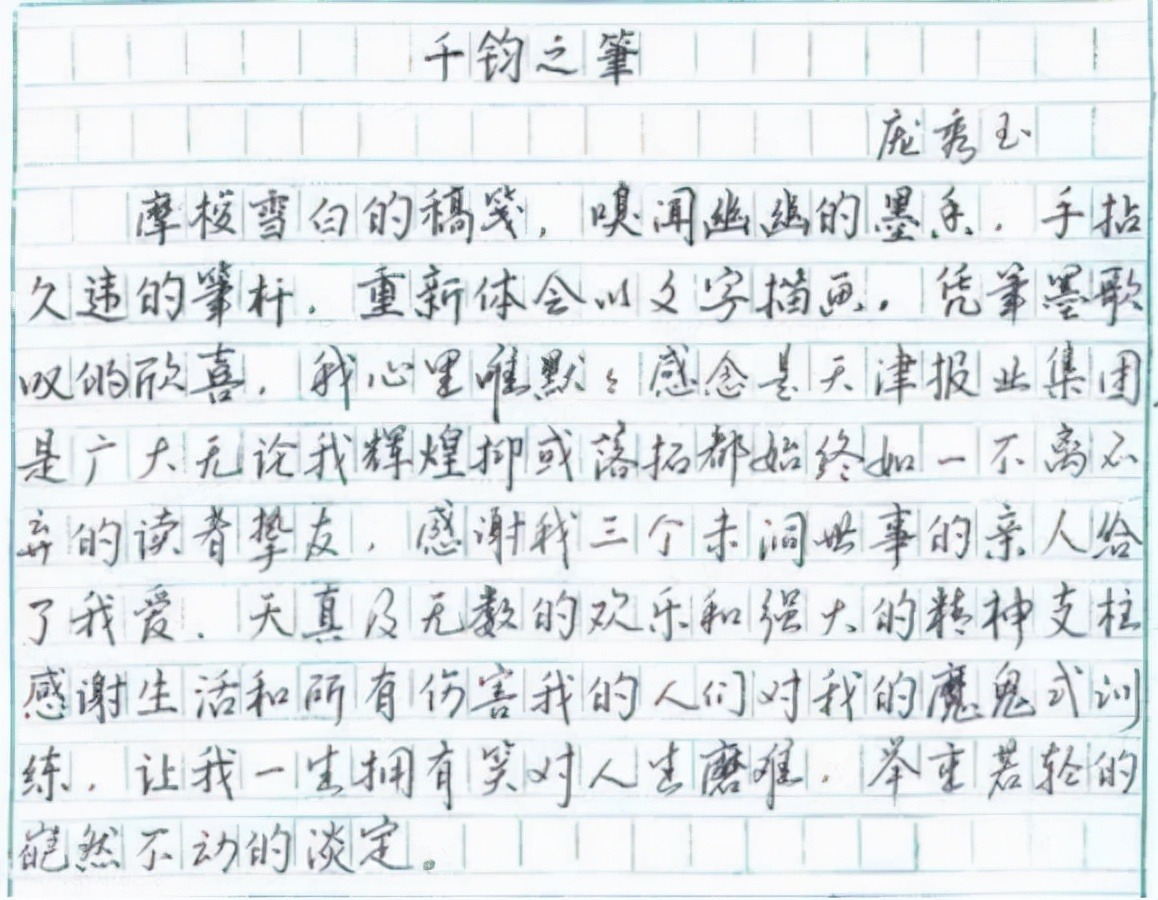 千钧之筆
庞秀玉
摩梭雪白的稿笺，嗅闻幽幽的墨香，手拈
久违的筆杆，重新体会以文字描画，凭筆墨歌
叹的欣喜，我心里唯默々感念是天津报业集团，
是广大无论我辉煌抑或落拓都始终如一不离不
弃的读者挚友，感谢我三个未洞世事的亲人给
了我爱、天真及无数的欢乐和强大的精神支柱
感谢生活和所有伤害我的人们对我的魔鬼式训
练，让我一生拥有笑对人生磨难，举重若轻的
岿然不动的淡定。